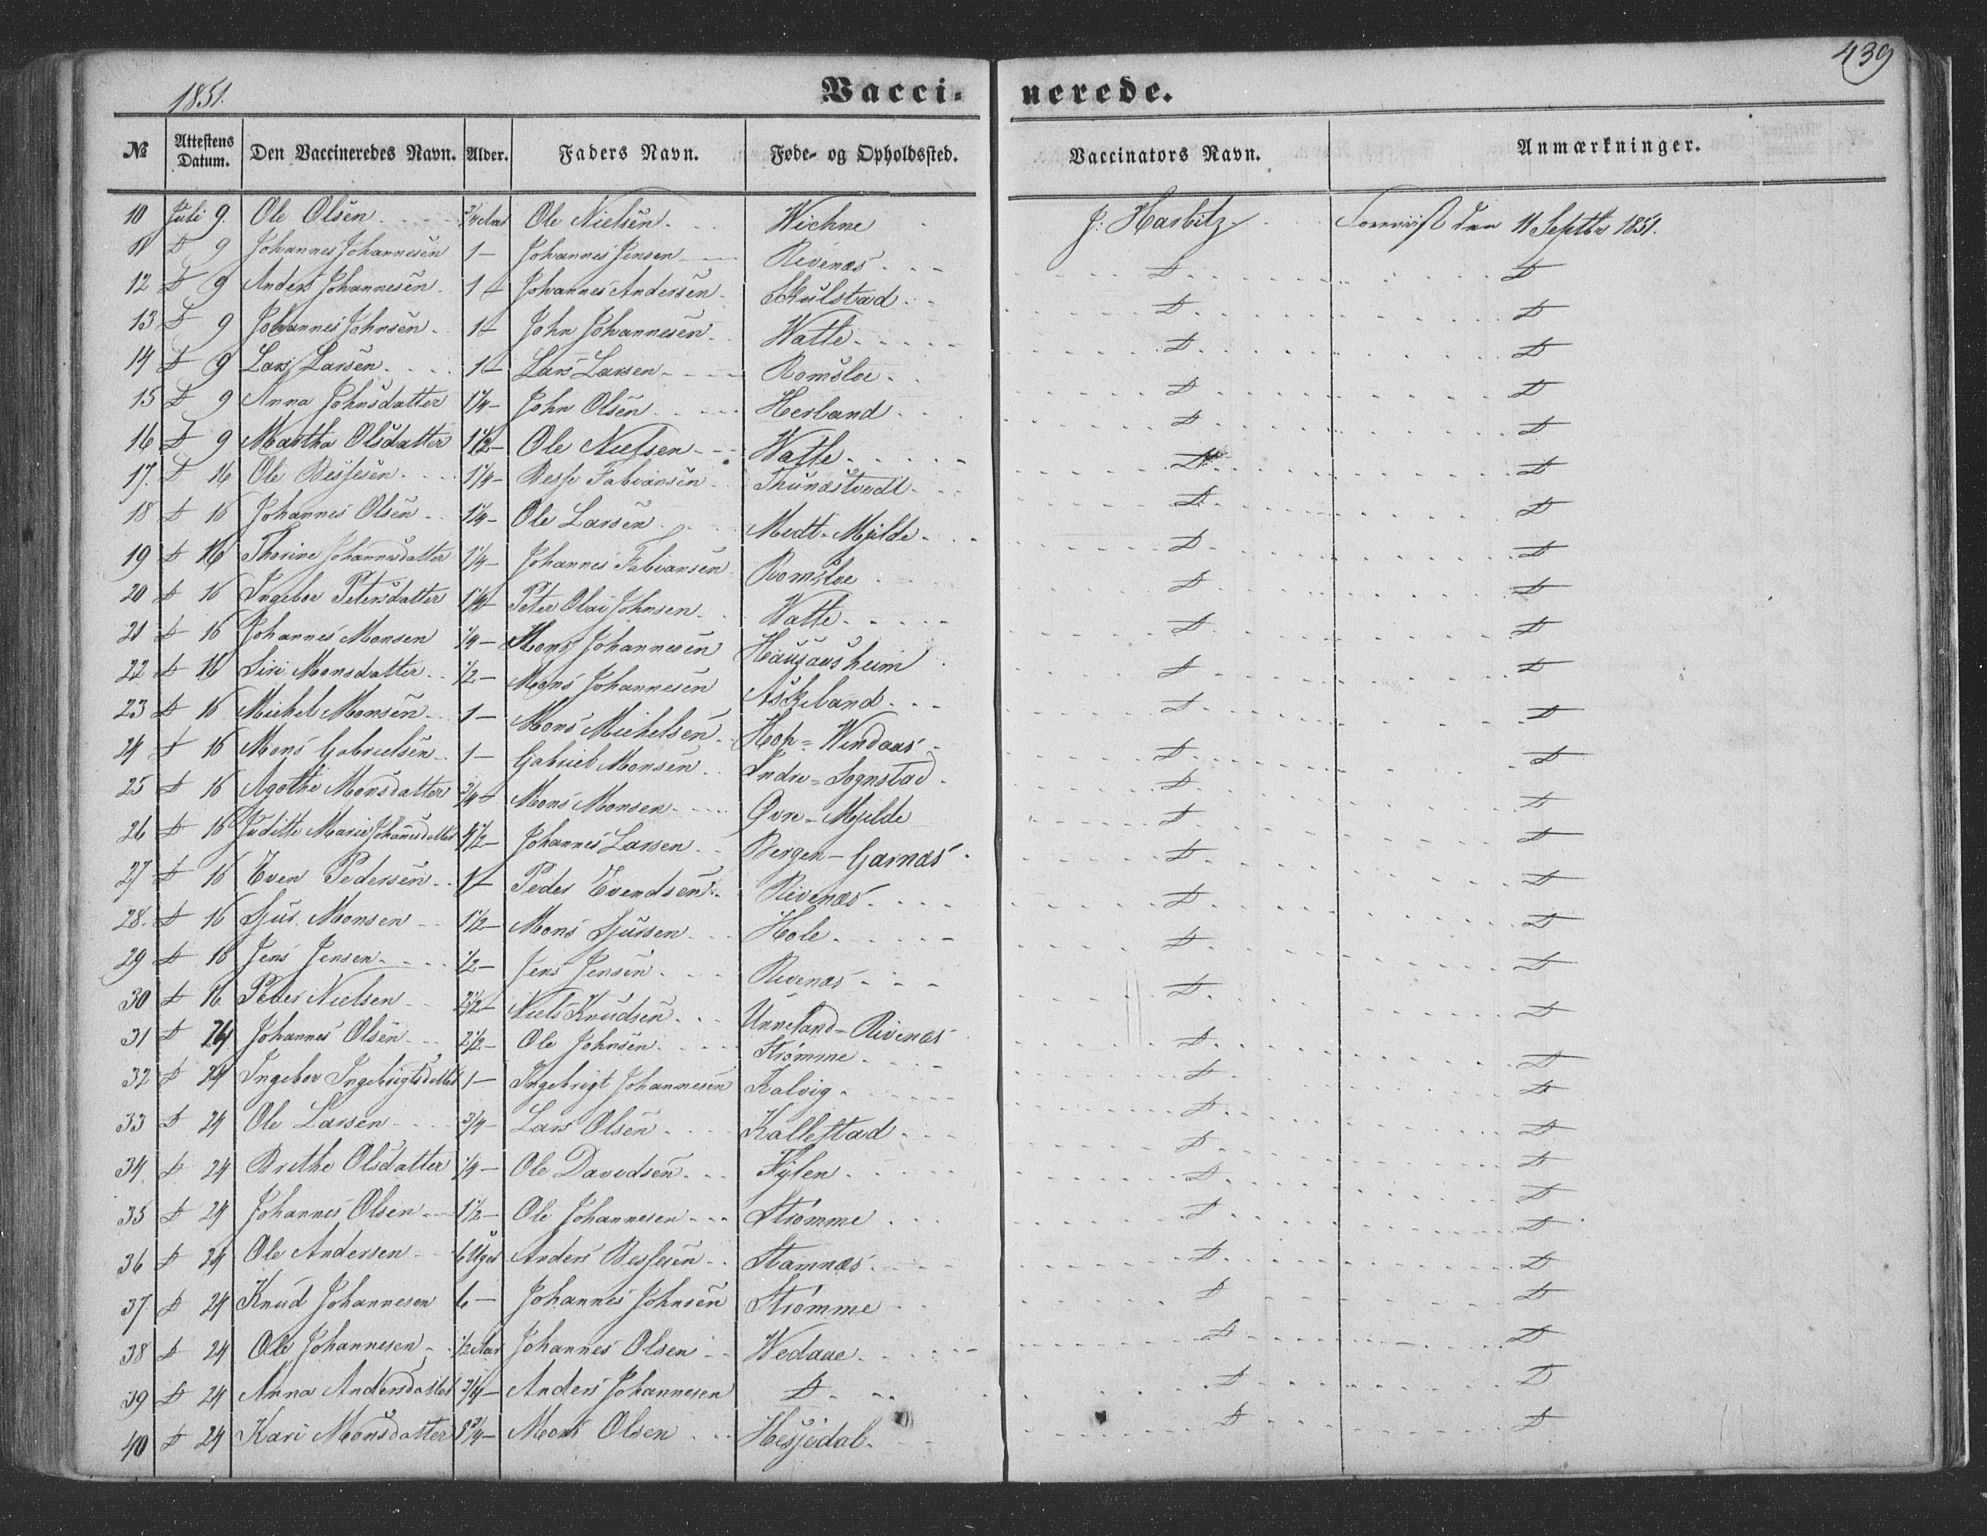 439
1851.
Vacci- nerede.
№ Attestens Datum. Den Vaccineredes Navn. Alder. Faders Navn. Føde- og Opholdssted. Vaccinators Navn. Anmærkninger.
10 Juli 9. Ole Olsen 3/4 Aar Ole Nielsen Wichne J: Harbitz Foreviist den 11 Septbr 1851.
11 D 9 Johannes Johannesen 1 - Johannes Jensen Rivenæs D D
12 D 9 Anders Johannesen 1 - Johannes Andersen Skulstad D D
13 D 9 Johannes Johnsen 1 - John Johannesen Watle D D
14 D 9 Lars Larsen 1 - Lars Larsen Romsloe D D
15 D 9 Anna Johnsdatter 1 1/4 - John Olsen Herland D D
16 D 9 Martha Olsdatter 1 1/2 - Ole Nielsen Watle D D
17. D 16 Ole Bessesen 1 1/4 - Besse Fabiansen Thunæstvedt D D
18 D 16 Johannes Olsen 1 1/4 - Ole Larsen Medt-Mjelde D D
19 D 16 Thorine Johannesdatter 1 1/4 - Johannes Fabiansen Romsloe D D
20 D 16 Ingebor Petersdatter 1 1/4 - Peter Olai Johnsen Watle D D
21 D 16 Johannes Monsen 1/4 - Mons Johannesen Haugausheim D D
22 D 16 Siri Monsdatter 1/2 - Mons Johannesen Askeland D D
23 D 16 Michel Monsen 1 - Mons Michelsen Hop-Windaas D D
24 D 16 Mons Gabrielsen 1 - Gabriel Monsen Indre-Sognstad D D
25 D 16 Agothe Monsdatter 3/4 - Mons Monsen Øvre-Mjelde D D
26 D 16 Juditte Marie Johansdatter 4 1/2 - Johannes Larsen Bergen-Garnæs D D
27 D 16 Even Pedersen 1 - Peder Evendsen Rivenæs D D
28. D 16 Sjur Monsen 1 1/2 - Mons Sjursen Hole D D
29 D 16 Jens Jensen 1/2 - Jens Jensen Rivenæs D D
30 D 16 Peter Nielsen 2 1/2 - Niels Knudsen Unneland-Rivenæs D D
31 D 24 Johannes Olsen 2 1/2 - Ole Johnsen Strømme D D
32 D 24 Ingebor Ingebrigtsdatter 1 - Ingebrigt Johannesen Kalvig D D
33 D 24 Ole Larsen 3/4 - Lars Olsen Kallestad D D
34. D 24 Brethe Olsdatter 1/4 - Ole Davidsen Fylen D D
35 D 24 Johannes Olsen 1 1/2 - Ole Johannesen Strømme D D
36 D 24 Ole Andersen 6 Uger Anders Bessesen Stamnæs D D
37. D 24 Knud Johannesen 6 - Johannes Johnsen Strømme D D
38 D 24 Ole Johannesen 1/2 Aar Johannes Olsen Wedaae D D
39 D 24 Anna Andersdatter 3/4 - Anders Johannesen D D D
40 D 24 Kari Monsdatter 8 3/4 - Mons Olsen Hesjedal D D